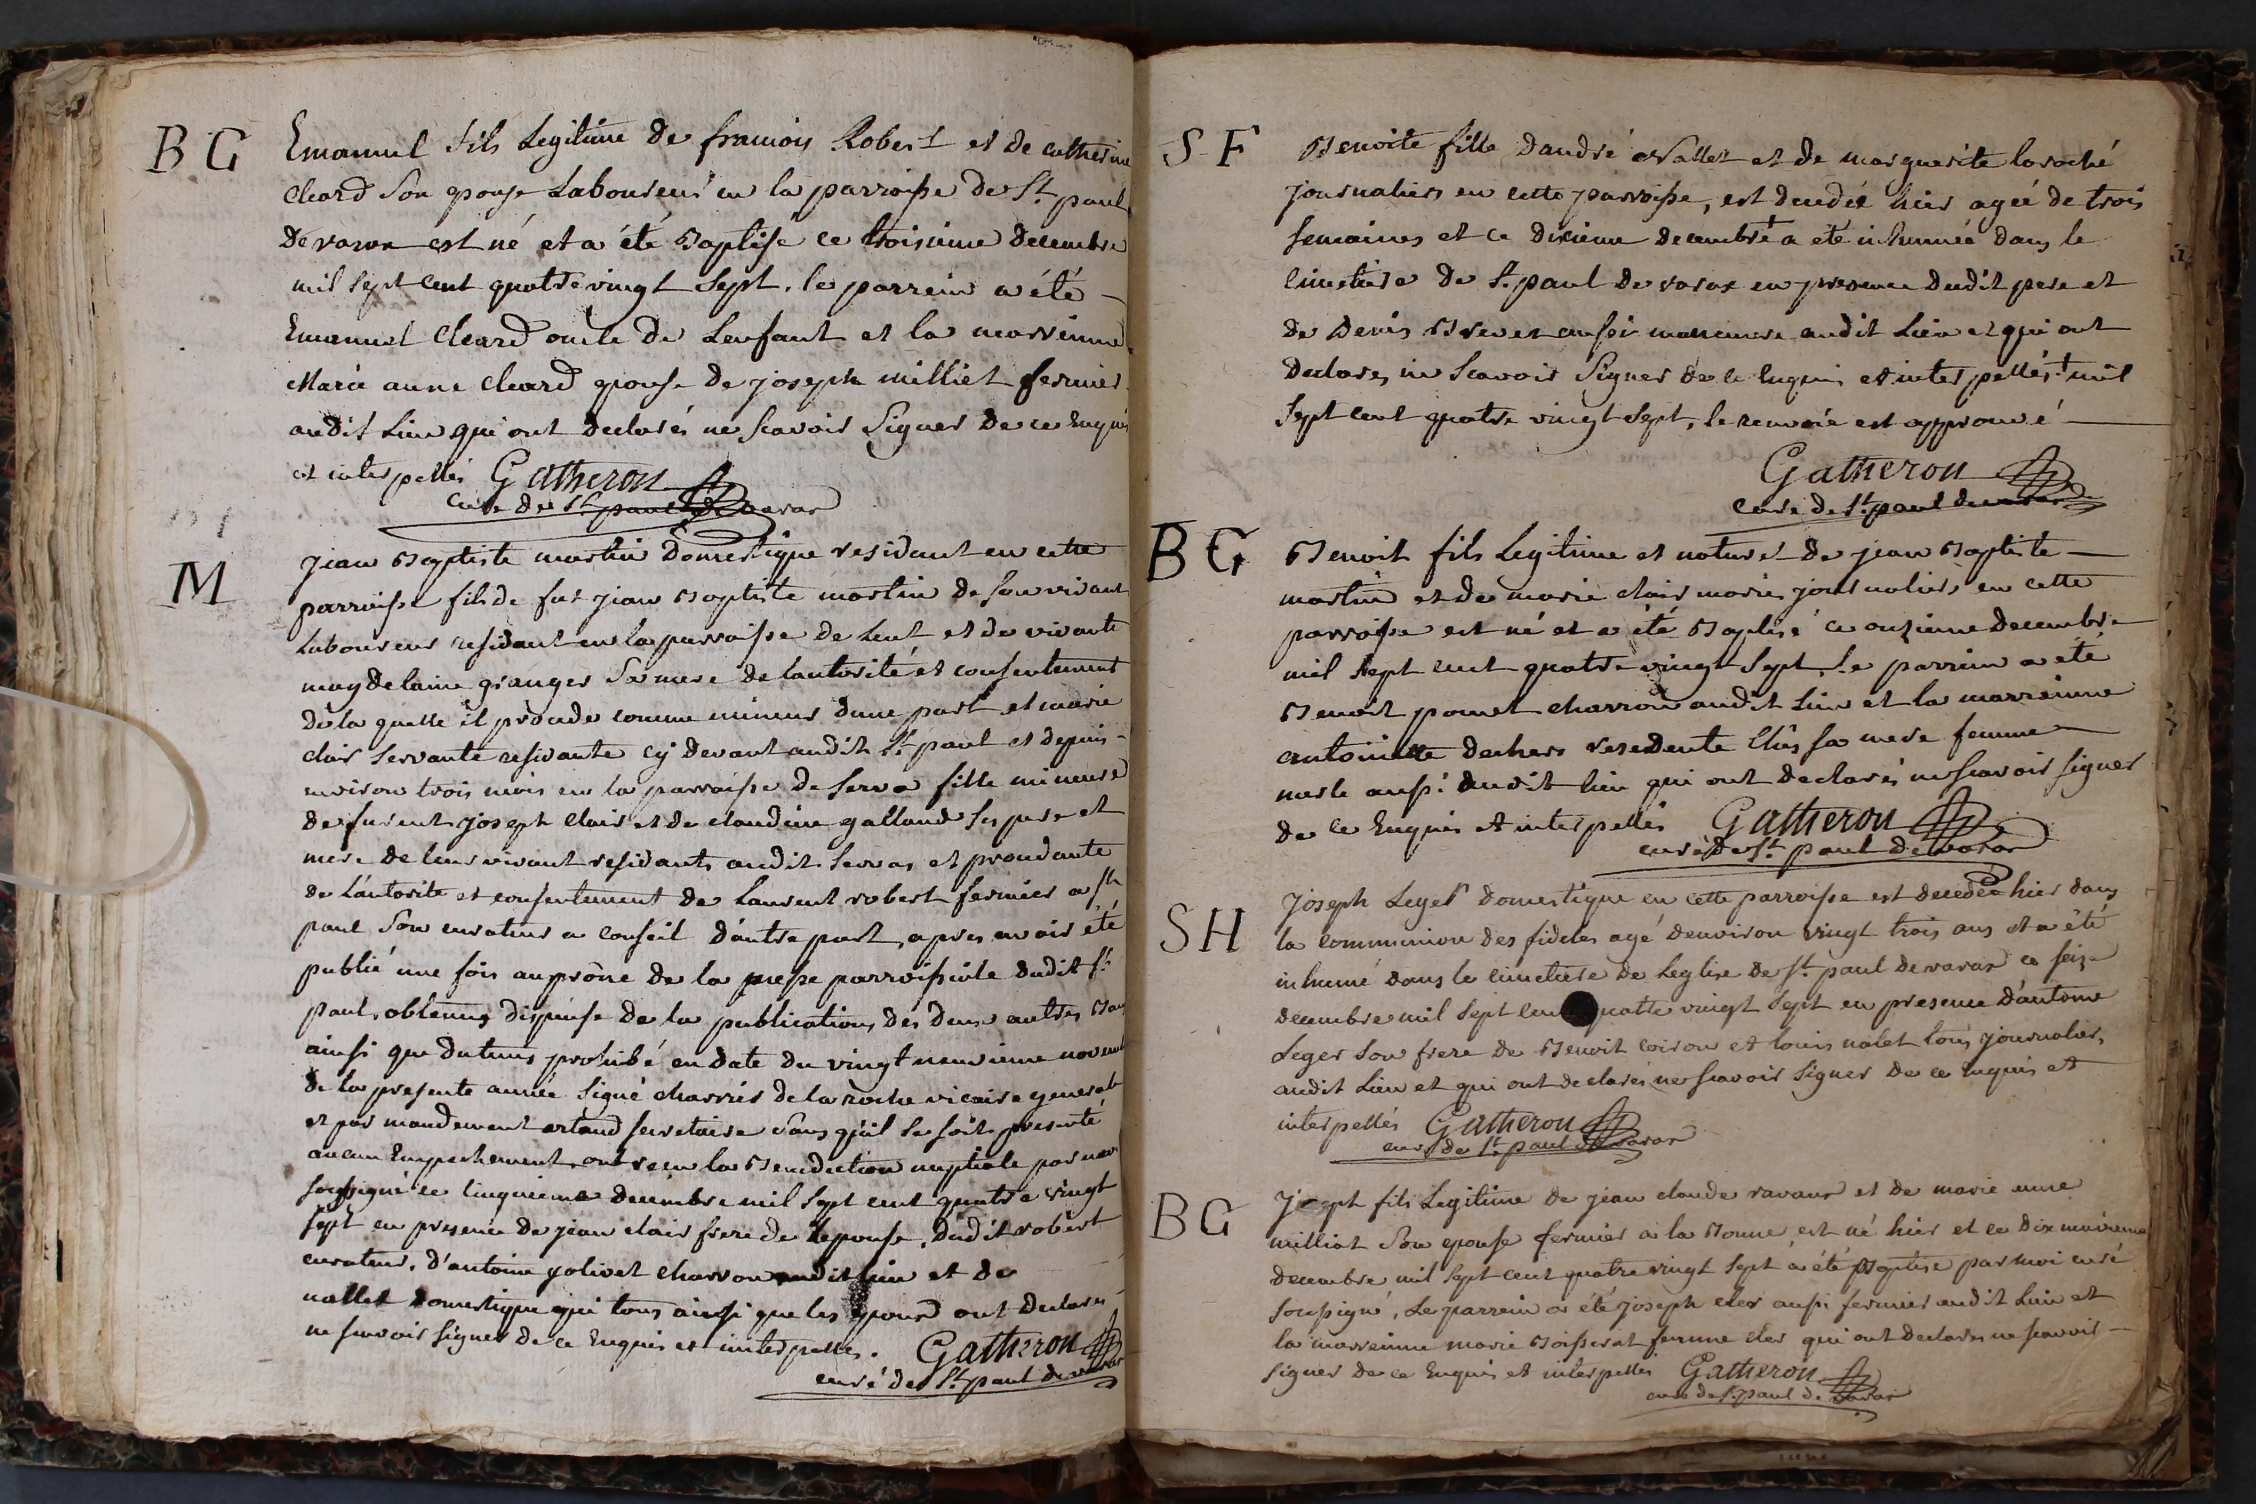 BG
Emanuel fils Legitime de francois Robert et de catherine
cleard Son epouse Laboureur en la parroisse de St. paul
de varax est né et a été Baptisé ce troisieme decembre
mil sept cent quatre vingt sept. le parrein a été
Emanuel Cleard oncle de Lenfant et la marreinne
Marie anne Cleard epouse de joseph milliet fermier
audit Lieu qui ont declarés ne scavoir Signer de ce Enquis
et interpellés Gatheron
curé de St. paul de varax
M
jean Baptiste martin Domestique residant en cette
parroisse fils de fut jean Baptiste martin de son vivant
Laboureur residant en la parroisse de Lent et de vivante
magdelaine granger Sa mere de lautorité et consentement
de la quelle il procede comme mineur dune part et marie
clair servante residante cy devant audit St. paul et depuis
environ trois mois en la parroisse de Serva fille mineure
de furent joseph Clair et de claudine galland ses pere et
mere de leur vivant residants audit Servas et procedante
de L'autorite et consentement de Laurent robert fermier a St.
paul Son curateur a conseil d'autre part, apres avoir été
publié une fois au prône de la messe parroissiale dudit St.
paul, obtenus dispense de la publication des deux autres Bans
ainsi que du tems prohibé en date du vingt neuvieme novemb
de la presente année Signé charrié de la roche vicaire general
et par mandement artaud secretaire sans qu'il se soit presenté
aucun Empechement, ont recu la Benediction nuptiale par nous
soussigné ce cinquieme decembre mil sept cent quatre vingt
sept en presence de jean clair frere de L'epouse, dudit robert
curateur, d'antoine jolivet charron audit lieu et de
nallet domestique qui tous ainsi que les epoux ont declarés
ne scavoir signer de ce Enquis et interpellés. Gatheron
curé de St. paul de varax
SF
Benoite fille d'andré Nallet et de marguerite laroché
journaliers en cette parroisse, est decedée hier agée de trois
semaines et ce dixieme decembre † a été inhumée dans le
cimetiere de St. paul de varax en presence dudit pere et
de Denis Brevet aussi manœuvre audit Lieu et qui ont
declarés ne scavoir Signer de ce Enquis et interpellés † mil
sept cent quatre vingt sept, le renvoie est approuvé
Gatheron
curé de St. paul de varax
BG
Benoit fils Legitime et naturel de jean Baptiste
martin et de marie clair mariés journaliers en cette
parroisse est né et a été Baptisé ce onzieme decembre
mil sept cent quatre vingt sept, le parrein a été
Benoit pomet charron audit lieu et la marreinne
antoinette dechers residente chès sa mere femme
merle aussi dudit lieu qui ont declarés ne scavoir signer
de ce Enquis et interpellés Gatheron
curé de St. paul de varax
SH
joseph Leger domestique en cette parroisse est decedé hier dans
la communion des fideles agé denviron vingt trois ans et a été
inhumé dans le cimetiere de Leglise de St. paul de varax ce seize
decembre mil sept cent quatre vingt sept en presence d'antoine
Leger son frere de Benoit coiron et louis nalet tous journaliers
audit Lieu et qui ont declarés ne scavoir signer de ce enquis et
interpellés Gatheron
curé de St. paul de varax
BG
joseph fils Legitime de jean claude ravaux et de marie anne
milliat Son epouse fermier a la Bonne, est né hier et ce dix neuvieme
decembre mil sept cent quatre vingt sept a été Baptisé par moi curé
soussigné, Le parrein a été joseph cler aussi fermier audit Lieu et
la marreinne marie Boisserat femme cler qui ont declarés ne scavoir
signer de ce Enquis et interpellés Gatheron
curé de St. paul de varax